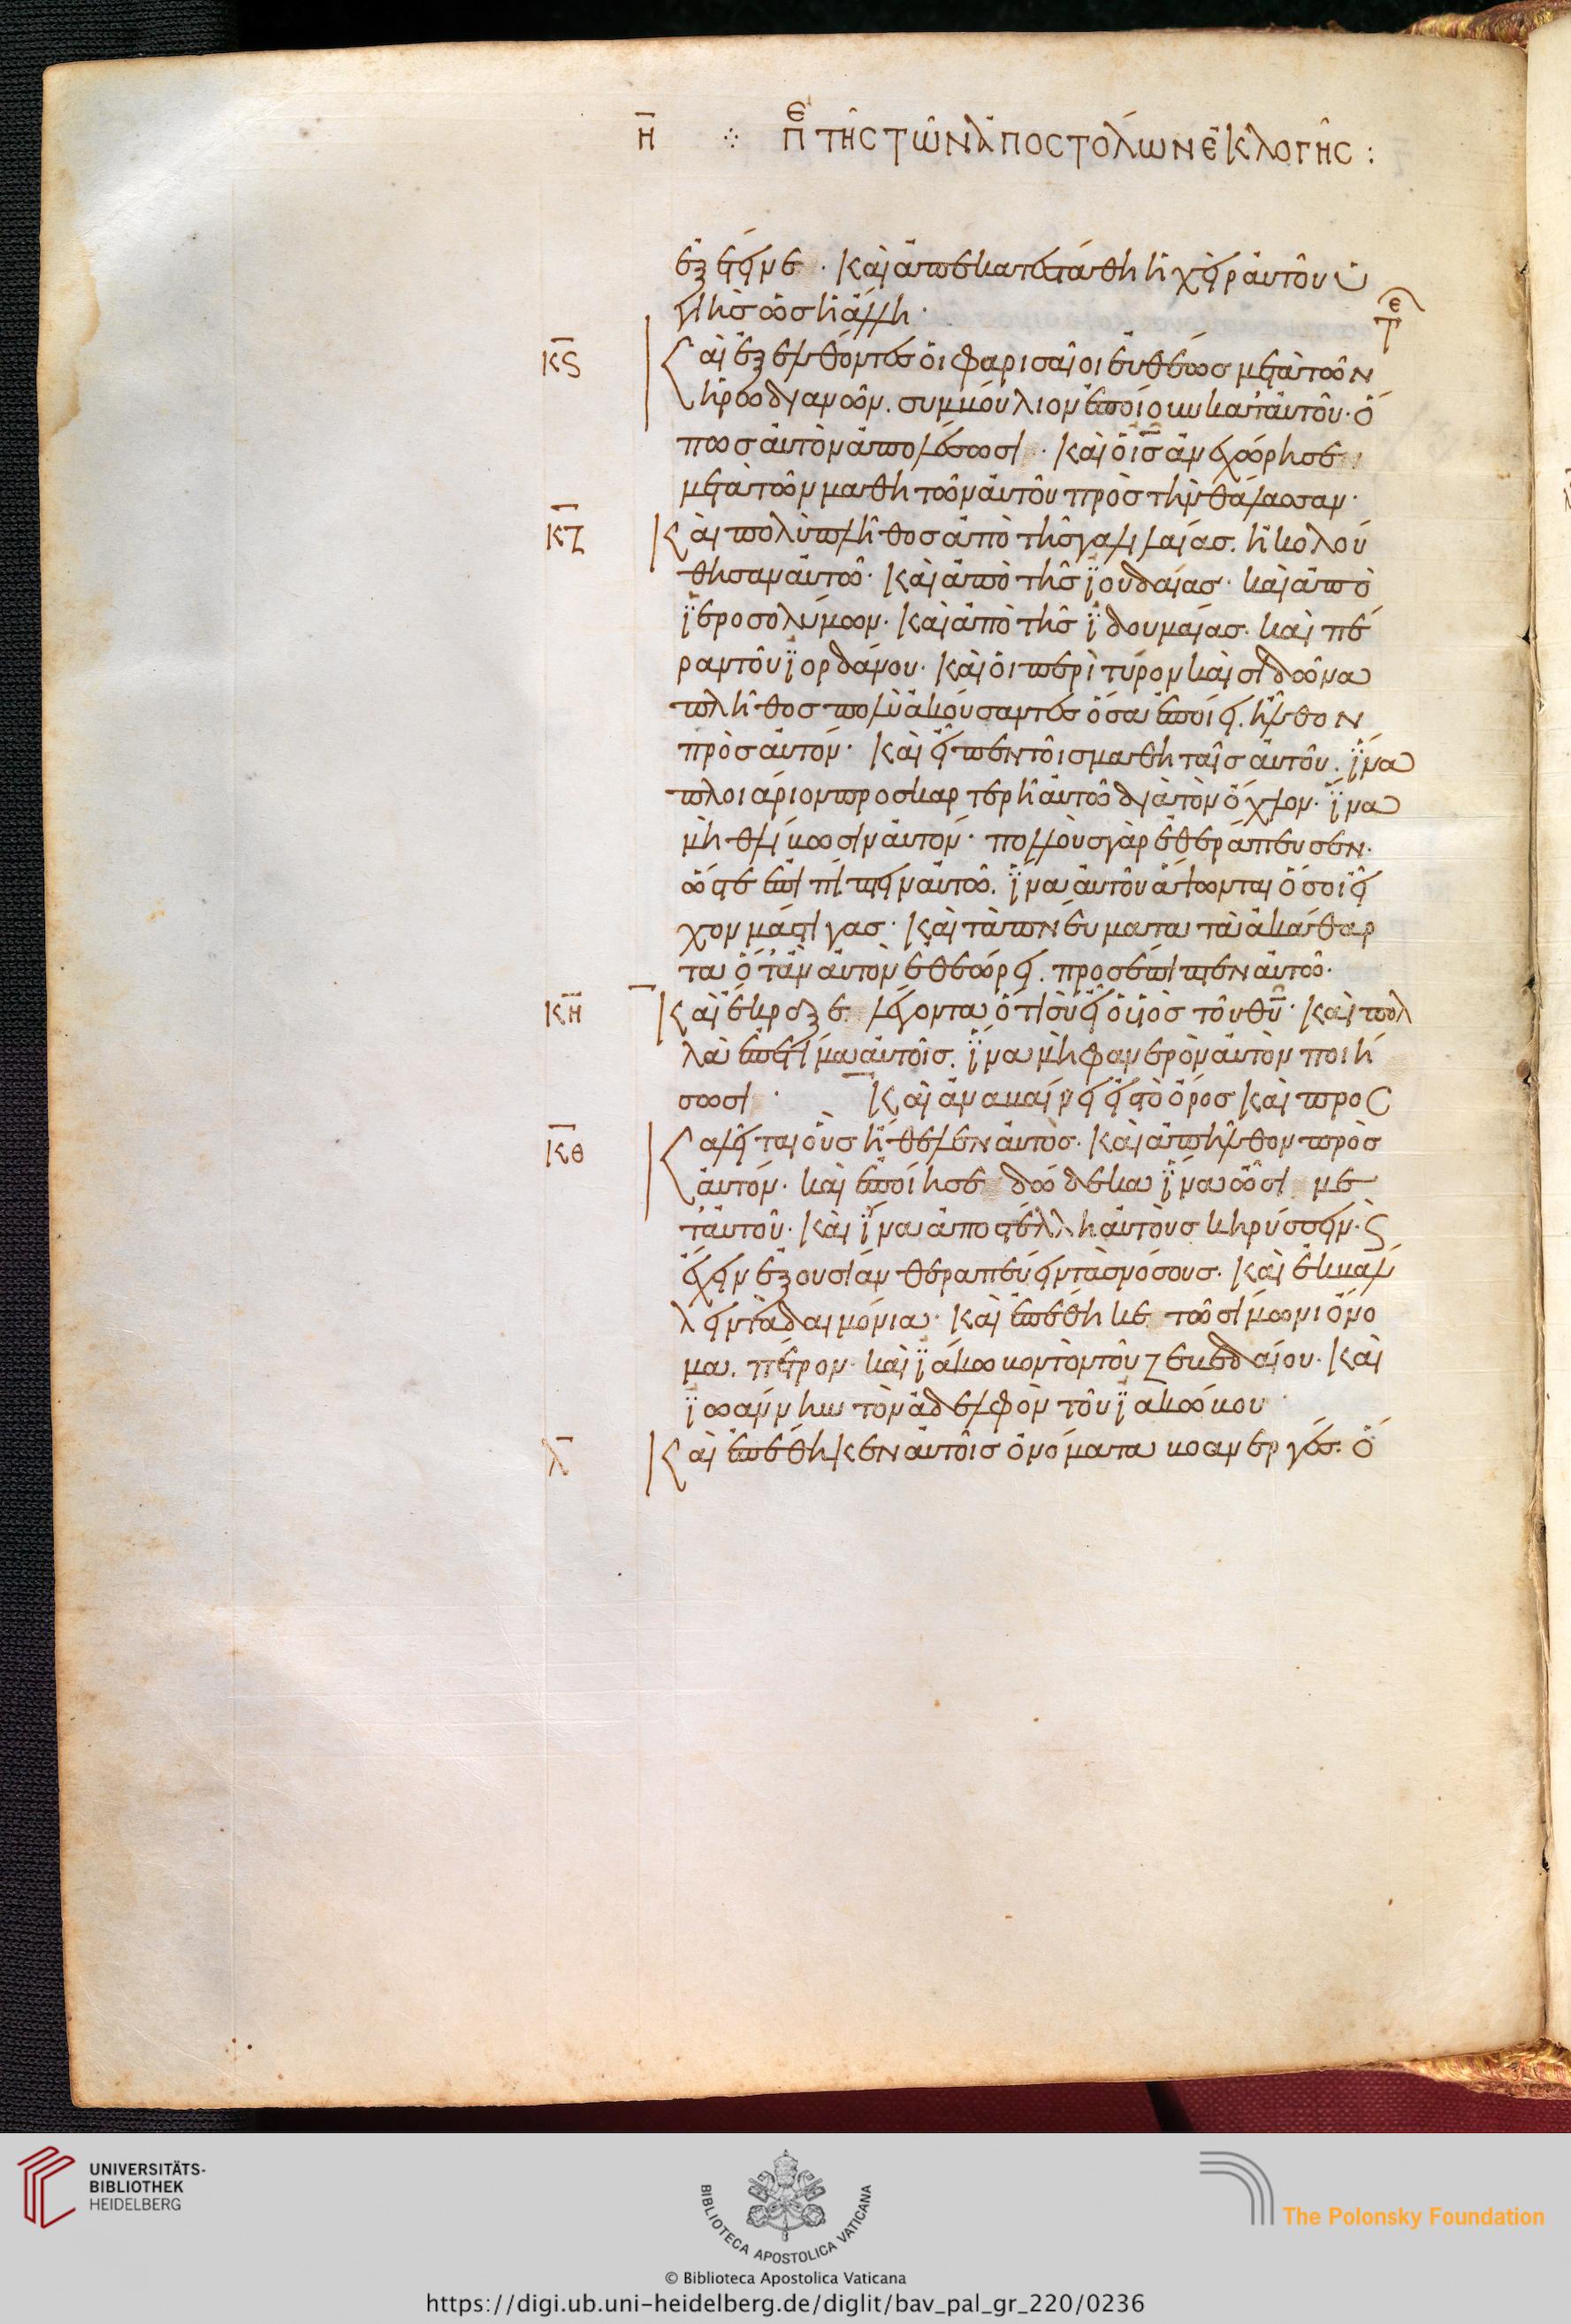 Η ⁘ ΠΕ ΤΗ͂Σ ΤΩ͂Ν ἈΠΟΣΤΌΛΩΝ ἘΚΛΟΓΗ͂Σ :
ἐξέτεινε · καὶ ἀπεκατεστάθη ἡ χεὶρ αὐτοῦ ὑ
γιὴς ὡς ἡ ἄλλη ·
τε
κϛ Καὶ ἐξελθόντες οἱ φαρισαῖοι εὐθέως μετὰ τῶν
ἡρωδιανῶν. συμβούλιον ἐποίουν κατ' αὐτοῦ · ὅ
πως αὐτὸν ἀπολέσωσι · καὶ ὁ ις ἀνεχώρησε
μετὰ τῶν μαθητῶν αὐτοῦ πρὸς τὴν θάλασσαν ·
κζ Καὶ πολὺ πλῆθος ἀπὸ τῆς γαλιλαίας. ἠκολού
θησαν αὐτῶ · καὶ ἀπὸ τῆς ϊουδαίας · καὶ ἀπὸ
ϊεροσολύμων · καὶ ἀπὸ τῆς ϊδουμαίας · καὶ πέ
ραν τοῦ ϊορδάνου · καὶ οἱ περὶ τύρον καὶ σιδῶνα
πλῆθος πολὺ ἀκούσαντες ὅσα ἐποίει. ἦλθον
πρὸς αὐτόν · καὶ εἶπεν τοῖς μαθηταῖς αὐτοῦ. ἵνα
πλοιάριον προσκαρτερῆ αὐτῶ διὰ τὸν ὄχλον · ἵνα
μὴ θλίβωσιν αὐτόν · πολλοὺς γὰρ ἐθεράπευσεν ·
ὥστε ἐπιπίπτειν αὐτῶ. ἵνα αὐτοῦ ἅψωνται ὅσοι εἶ
χον μάστιγας · καὶ τὰ πνεύματα τὰ ἀκάθαρ
τα ὅταν αὐτὸν ἐθεώρει. προσέπιπτεν αὐτῶ ·
κη Καὶ ἔκραζε λέγοντα ὅτι σὺ εἶ ὁ υἱὸς τοῦ θυ · καὶ πολ
λὰ ἐπετίμα αὐτοῖς. ἵνα μὴ φανερὸν αὐτὸν ποιή
σωσι · Καὶ ἀναβαίνει εἰς τὸ ὄρος καὶ προς
κθ Καλεῖται οὓς ἤθελεν αὐτὸς · καὶ ἀπῆλθον πρὸς
αὐτόν · καὶ ἐποίησε δώδεκα ἵνα ὦσι με
τ' αὐτοῦ · καὶ ἵνα ἀποστέλλη αὐτοὺς κηρύσσειν · ϛ
ἔχειν ἐξουσίαν θεραπεύειν τὰς νόσους · καὶ ἐκβάλ
λειν τὰ δαιμόνια · καὶ ἐπέθηκε τῶ σίμωνι ὄνο
μα. πέτρον · καὶ ϊάκωβον τὸν τοῦ ζεβεδαίου · καὶ
ϊωάννην τὸν ἀδελφὸν τοῦ ϊακώβου ·
λ Καὶ ἐπέθηκεν αὐτοῖς ὀνόματα βοανεργές · ὅ
UNIVERSITÄTS-
BIBLIOTHEK
HEIDELBERG
BIBLIOTECA APOSTOLICA VATICANA
The Polonsky Foundation
© Biblioteca Apostolica Vaticana
https://digi.ub.uni-heidelberg.de/diglit/bav_pal_gr_220/0236